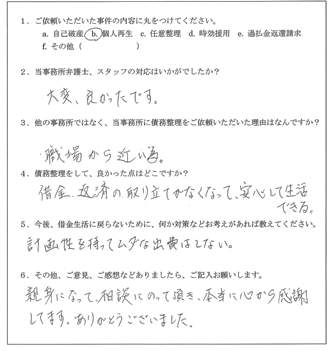 1．ご依頼いただいた事件の内容に丸をつけてください。
a. 自己破産　b. 個人再生　c. 任意整理　d. 時効援用　e. 過払金返還請求
f. その他（　　　　　）
2．当事務所弁護士、スタッフの対応はいかがでしたか？
大変、良かったです。
3．他の事務所ではなく、当事務所に債務整理をご依頼いただいた理由はなんですか？
・職場から近い為。
4．債務整理をして、良かった点はどこですか？
借金 返済の取り立てがなくなって、安心して生活
できる。
5．今後、借金生活に戻らないために、何か対策などお考えがあれば教えてください。
計画性を持ってムダな出費はしない。
6．その他、ご意見、ご感想などありましたら、ご記入お願いします。
親身になって、相談にのって頂き、本当に心から感謝
してます。ありがとうございました。